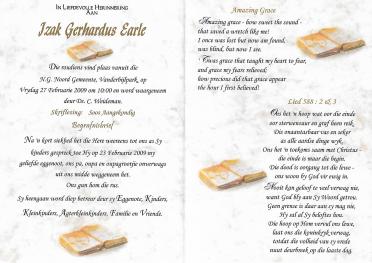 In Liefdevolle Herinnering
Aan
Izak Gerhardus Earle
Die roudiens vind plaas vanuit die
N.G. Noord Gemeente, Vanderbijlpark, op
Vrydag 27 Februarie 2009 om 10:00 en word waargeneem
deur Dr. C. Weideman.
Skriflesing: Soos Aangekondig
Begrafnisbrief
Na 'n kort siekbed het die Here weereens tot ons as Sy
kinders gespreek toe Hy op 23 Februarie 2009 my
geliefde eggenoot, ons pa, oupa en oupagrootjie onverwags
uit ons midde weggeneem het.
Ons gun hom die rus.
Sy heengaan word diep betreur deur sy Eggenote, Kinders,
Kleinkinders, Agterkleinkinders, Familie en Vriende.
Amazing Grace
Amazing grace - how sweet the sound -
that saved a wretch like me!
I once was lost but now am found,
was blind, but now I see.
'Twas grace that taught my heart to fear,
and grace my fears relieved;
how precious did grace appear
the hour I first believed!
Lied 588 : 2 & 3
Ons het 'n hoop wat oor die einde
oor sterwensuur en graf heen reik.
Die onaantasbaar vas en seker
as alle aardse dinge wyk.
Ons het 'n toekoms saam met Christus -
die einde is maar die begin.
Die dood is oorgang tot die lewe -
ons woon by God vir ewig in.
Mooit kan geloof te veel verwag nie,
want God bly aan Sy Woord getrou.
Geen grense is daar aan sy mag nie,
Hy sal al Sy beloftes hou.
Die hoop op Hom vervul ons lewe,
laat ons die koninkryk verwag,
totdat die volheid van sy vrede